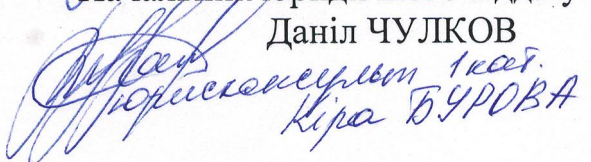 Даніл ЧУЛКОВ
юрисконсульт 1 кат.
Кіра БУРОВА